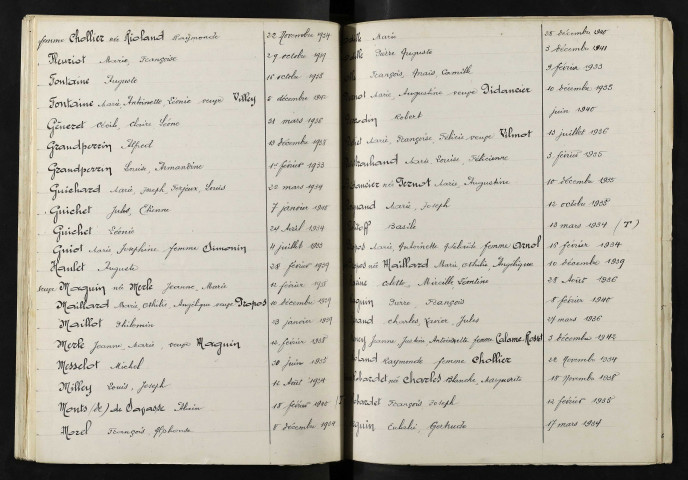 femme Chollier née Rioland Raymonde 22 Novembre 1934
Fleuriot Marie, Françoise 29 octobre 1939
Fontaine Auguste 15 octobre 1938
Fontaine Marie, Antoinette, Léonie veuve Villey 5 décembre
Géneret Cécile, Claire, Léonie 31 mars 1938
Grandperrin Alfred 13 décembre 1938
Grandperrin Louis, Armandine 1er février 1933
Guichard Marie, Joseph, Louis 22 mars 1934
Guichet Jules, Etienne 7 janvier
Guichet Léonie 24 Avril 1934
Guiot Marie Joséphine femme Simonin 4 juillet 1933
Haulet Auguste 28 février 1939
veuve Maguin née Merle Jeanne, Marie 12 février 1938
Maillard Marie, Othilie, Angélique veuve Propos 10 décembre 1939
Maillot Philomin 13 janvier 1937
Merle Jeanne, Marie, veuve Maguin 12 février 1938
Messelot Michel 30 juin 1935
Milley Louis, Joseph 16 Août 1934
Monts (de) de Savasse Alain 18 février
Morel François, Alphonse 8 décembre 1934
Marie 28 décembre 1940
Pierre Auguste 3 décembre 1941
François, Anais, Camille 9 février 1933
Marie, Augustine veuve Didancier 10 décembre 1935
Robert juin 1940
Marie, Françoise, Félicie veuve Vilmot 13 juillet 1936
Marie, Louise, Félicienne 3 février 1935
née Pernot Marie, Augustine 10 décembre 1935
Marie, Joseph 12 octobre 1938
Basile 19 mars 1934 (T)
Marie, Antoinette femme Arnol 15 février 1934
née Maillard Marie, Othilie, Angélique 10 décembre 1939
Mireille Léontine 28 Août 1936
Pierre, François 8 février 1940
Charles, Xavier, Jules 27 mars 1936
Jeanne Justine Antoinette, femme Calame-Rosset 3 décembre 1942
Raymonde femme Chollier 22 Novembre 1934
née Charles Blanche, Marguerite 18 Novembre 1938
François Joseph 12 février 1935
Eulalie, Gertrude 17 mars 1934